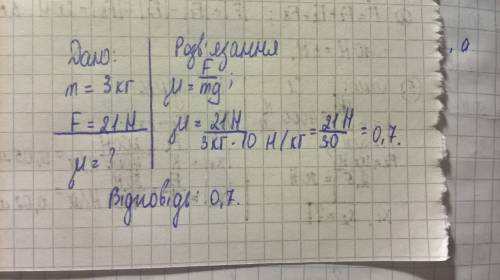 Дано:
m = 3 кг
F = 21 Н
μ = ?
Розв'язання
μ = F/mg;
μ = 21 Н / 3 кг · 10 Н/кг = 21 Н / 30 = 0,7.
Відповідь: 0,7.
, а